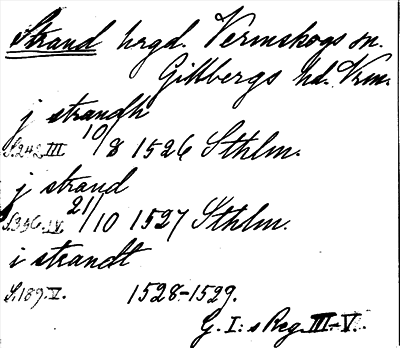 Strand hrgd. Värmskogs sn.
Gillbergs hd. Vrm.
j strandh
S.242 III 10/8 1526 Sthlm.
j strand
S.396.IV. 21/10 1527 Sthlm.
i strandt
S.189.V. 1528-1529.
G. I:s Reg. III-V.